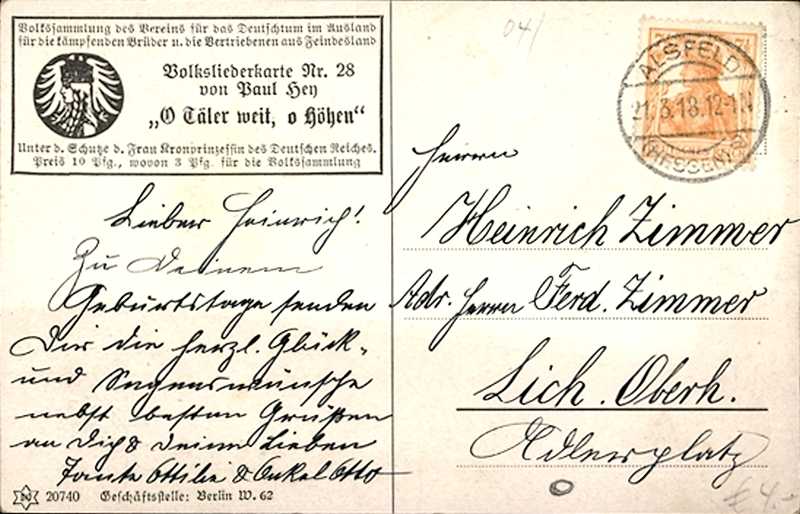 Volkssammlung des Vereins für das Deutschtum im Ausland
für die kämpfenden Brüder u. die Vertriebenen aus Feindesland
Volksliederkarte Nr. 28
von Paul Hey
„O Täler weit, o Höhen“
Unter d. Schutze d. Frau Kronprinzessin des Deutschen Reiches.
Preis 10 Pfg., wovon 3 Pfg. für die Volkssammlung
Lieber Heinrich!
Zu Deinem
Geburtstage senden
Dir die herzl. Glück-
und Segenswünsche
nebst besten Grüßen
an Dich & Deine Lieben
Tante Ottilie & Onkel Otto
20740 Geschäftsstelle: Berlin W. 62
04/
ALSFELD
21.3.18.12-1N
(HESSEN)
Herrn
Heinrich Zimmer
Adr. Herrn Ferd. Zimmer
Lich. Oberh.
Adlerplatz
€ 4.-